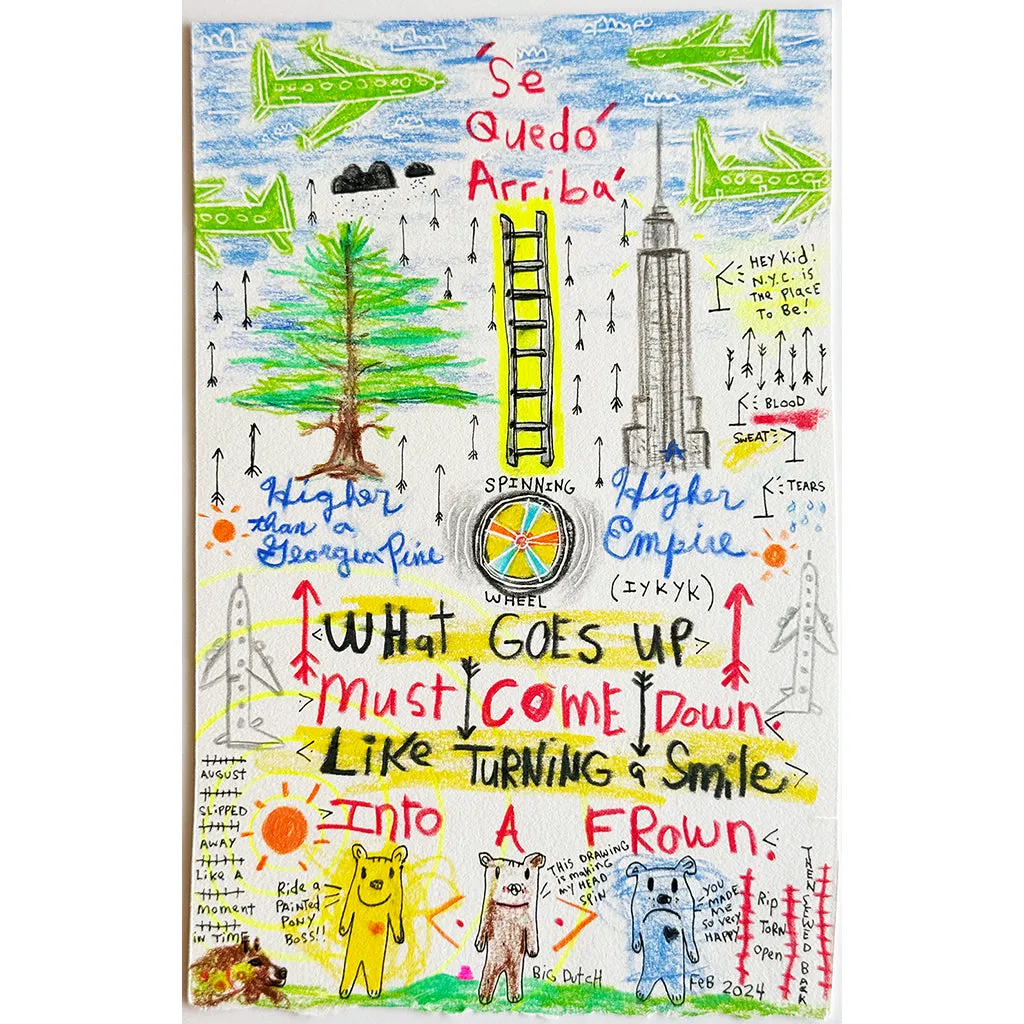 'Se
Quedó
Arribá
HEY Kid!
N.Y.C. is
THE PLACE
To Be!
BLOOD
SWEAT
TEARS
SPINNING
WHEEL
Higher
than a
Georgia Pine
Higher
Empire
(IYKYK)
WHat GOES UP
Must COME Down.
Like TURNING a Smile
Into A FRown.
AUGUST
SLIPPED
AWAY
Like A
Moment
in TIME
Ride a
PAINTED
PONY
BOSS!!
THIS DRAWING
is making
MY HEAD
SPIN
YOU
MADE
ME
so very
HAPPY
Rip
TORN
Open
THEN SEWED BACK
BIG DUTCH
FEB 2024